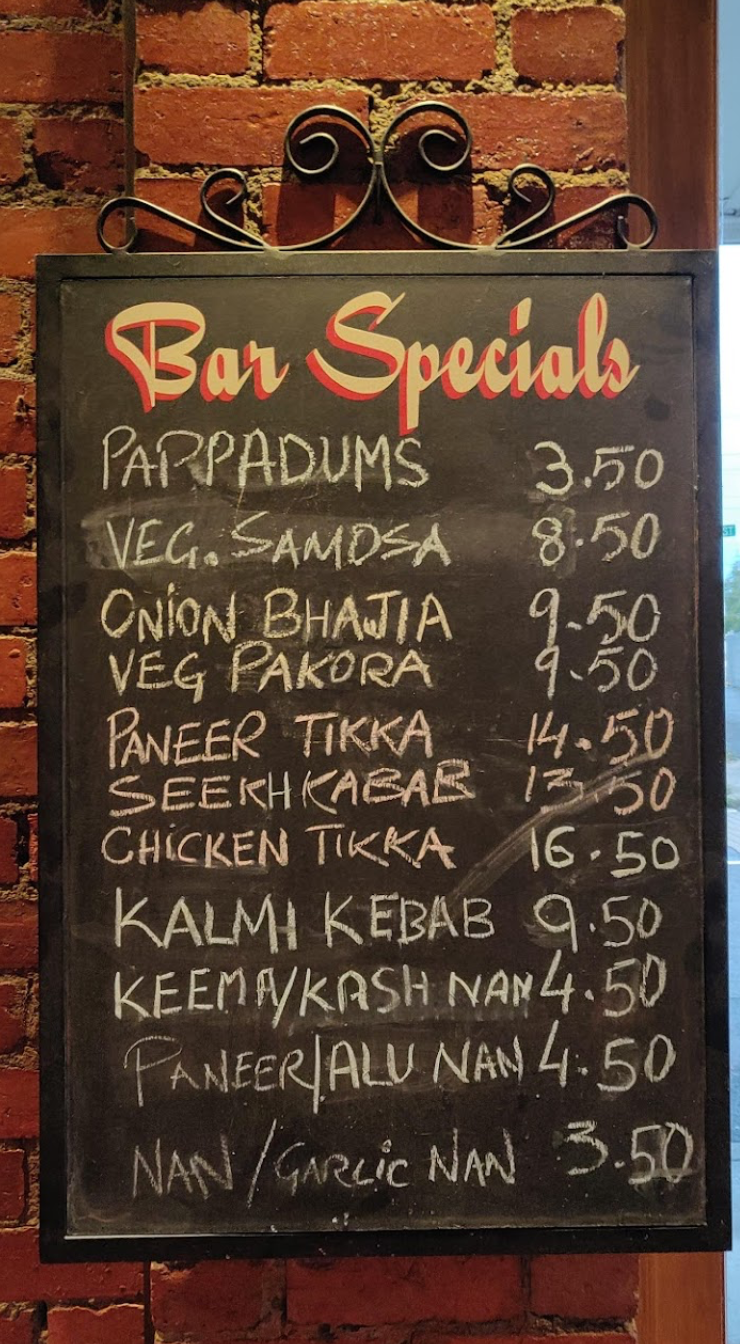 Bar Specials
PAPPADUMS 3.50
VEG. SAMOSA 8.50
ONION BHAJIA 9.50
VEG PAKORA 9.50
PANEER TIKKA 14.50
SEEKH KABAB 13.50
CHICKEN TIKKA 16.50
KALMI KEBAB 9.50
KEEMA/KASH NAN 4.50
PANEER/ALU NAN 4.50
NAN/GARLIC NAN 3.50